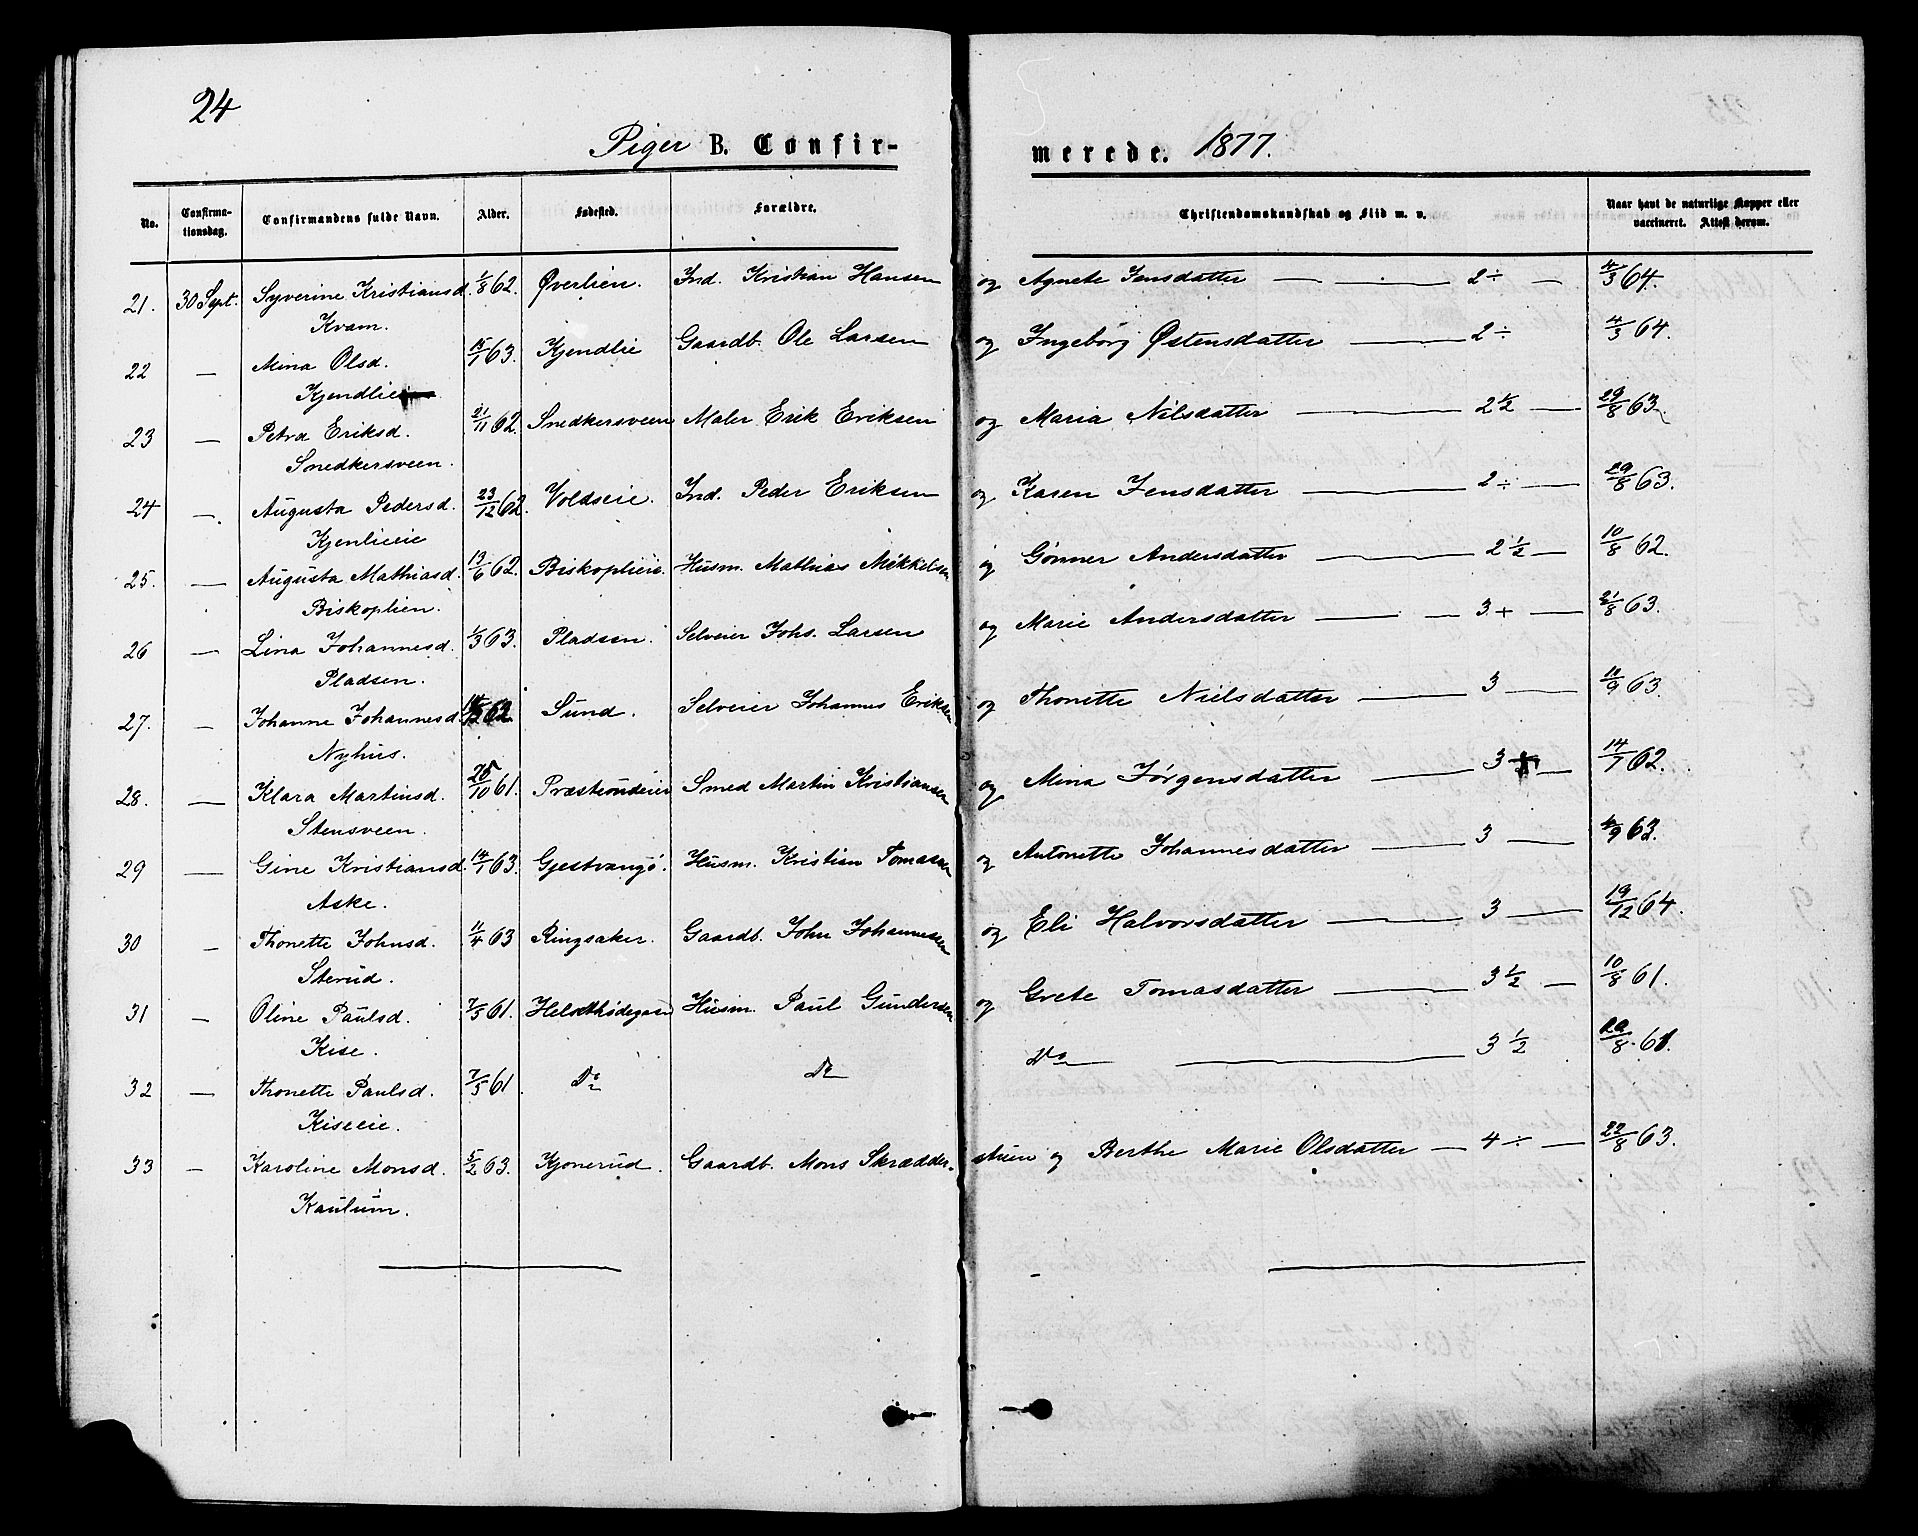 24
Piger B. Confir- merede. 1877.
No. Confirma-tionsdag. Confirmandens fulde Navn. Alder. Fødested. Forældre. Christendomskundskab og Flid m. v. Naar havt de naturlige Kopper eller vaccineret. Attest derom.
21. 30 Sept. Syverine Kristiansd. 1/8 62. Øverlien. Ind. Kristian Hansen og Agnete Jensdatter — 2 ÷ — 4/3 64.
Kvam.
22 — Mina Olsd. 15/1 63. Kjendlie Gaardb. Ole Larsen og Ingeborg Østensdatter — 2 ÷ 4/3 64.
Kjendlie
23 — Petra Eriksd. 21/11 62. Snedkersveen Maler Erik Eriksen og Maria Nilsdatter — 2 1/2 — 29/8 63.
Snedkersveen.
24 — Augusta Pedersd. 23/12 62. Voldseie. Ind. Peder Eriksen og Karen Jensdatter — 2 ÷ — 29/8 63.
Kjenlieeie
25. — Augusta Mathiasd. 13/6 62. Biskoplieie. Husm. Mathias Mikkelsen og Gønner Andersdatter — 2 1/2 — 10/8 62.
Biskoplien.
26 — Lina Johannesd. 1/3 63. Pladsen. Selveier Johs. Larsen og Marie Andersdatter — 3 + — 21/8 63.
Pladsen.
27. — Johanne Johannesd. 62. Sund. Selveier Johannes Eriksen og Thonette Nielsdatter — 3 — 63.
Nyhus.
28. — Klara Martinsd. 10 61. Smed Martin Kristiansen og Mina Jørgensdatter — 3 — 14/7 62.
Stensveen.
29 — Gine Kristiansd. 14/1 63. Gjestvangø. Husm. Kristian Tomassen og Antonette Johannesdatter — 3 — 63.
Aske.
30 — Thonette Johnsd. 11/4 63 Ringsaker. Gaardb. John Johannessen og Eli Halvorsdatter — 3 — 19/12 64.
Sterud.
31 — Oline Paulsd. 7/5 61. Husm. Paul Gundersen og Grete Tomasdatter — 3 1/2 — 10/8 61.
Kise.
32 — Thonette Paulsd. 7/5 61 Do Do Do — 3 1/2 29/8 61.
Kiseeie.
33 — Karoline Monsd. 5/2 63. Kjonerud. Gaardb. Mons Skrædder-stuen og Berthe Marie Olsdatter — 4 ÷ — 22/8 63.
Kaulum.